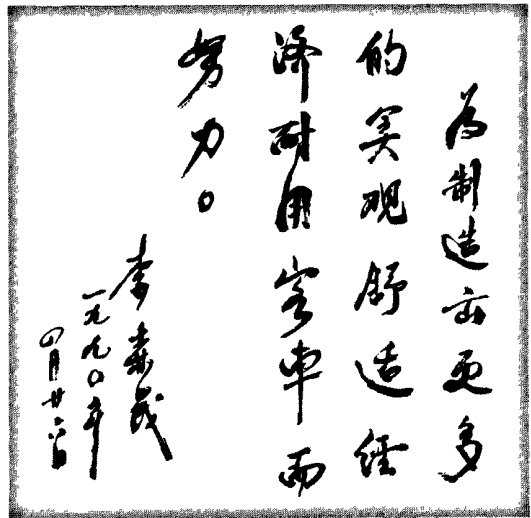 为制造出更多
的美观舒适经
济耐用客車而
努力。
李森茂
一九九〇年
四月廿六日